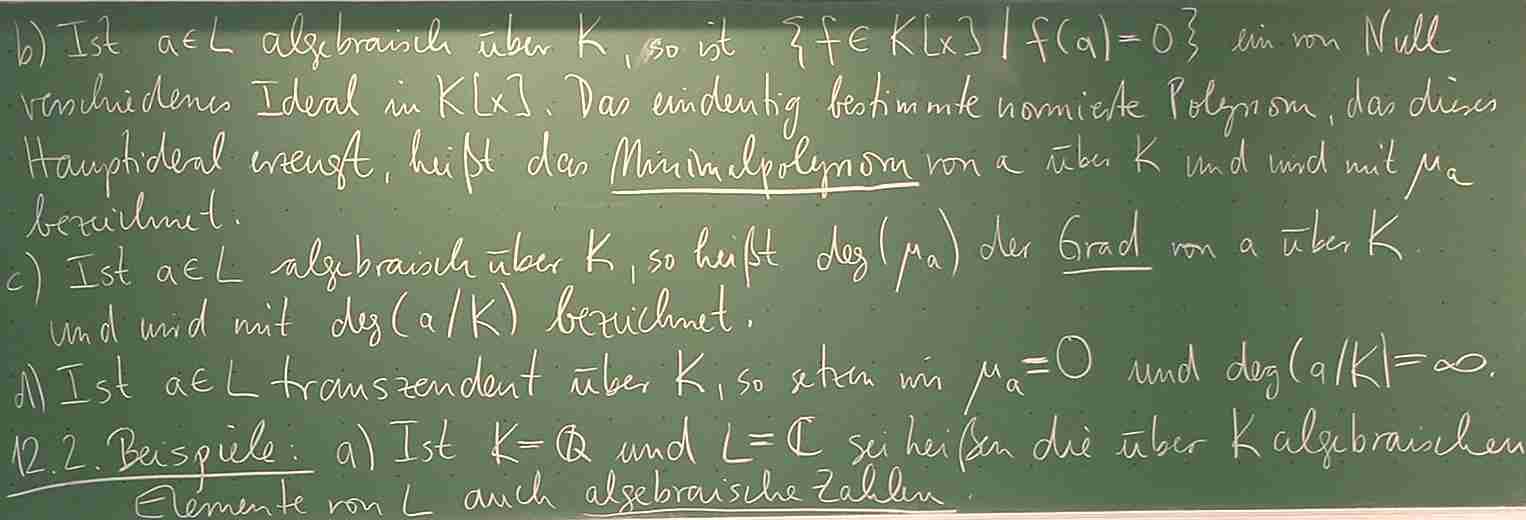 b) Ist a∈L algebraisch über K, so ist {f ∈ K[x] | f(a)=0} ein von Null
verschiedenes Ideal in K[x]. Das eindeutig bestimmte normierte Polynom, das dieses
Hauptideal erzeugt, heißt das Minimalpolynom von a über K und wird mit μₐ
bezeichnet.
c) Ist a∈L algebraisch über K, so heißt deg(μₐ) der Grad von a über K
und wird mit deg(a/K) bezeichnet.
d) Ist a∈L transzendent über K, so setzen wir μₐ=0 und deg(a/K)=∞.
12.2. Beispiele: a) Ist K=ℚ und L=ℂ so heißen die über K algebraischen
Elemente von L auch algebraische Zahlen.